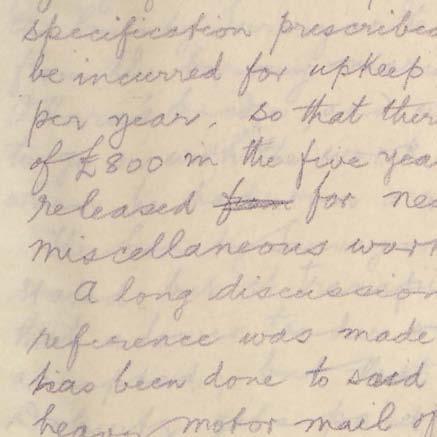 specification prescribed
be incurred for upkeep
per year. So that ther
of £800 in the five yea
released from for ne
miscellaneous work
A long discussion
reference was made
has been done to said
heavy motor mail